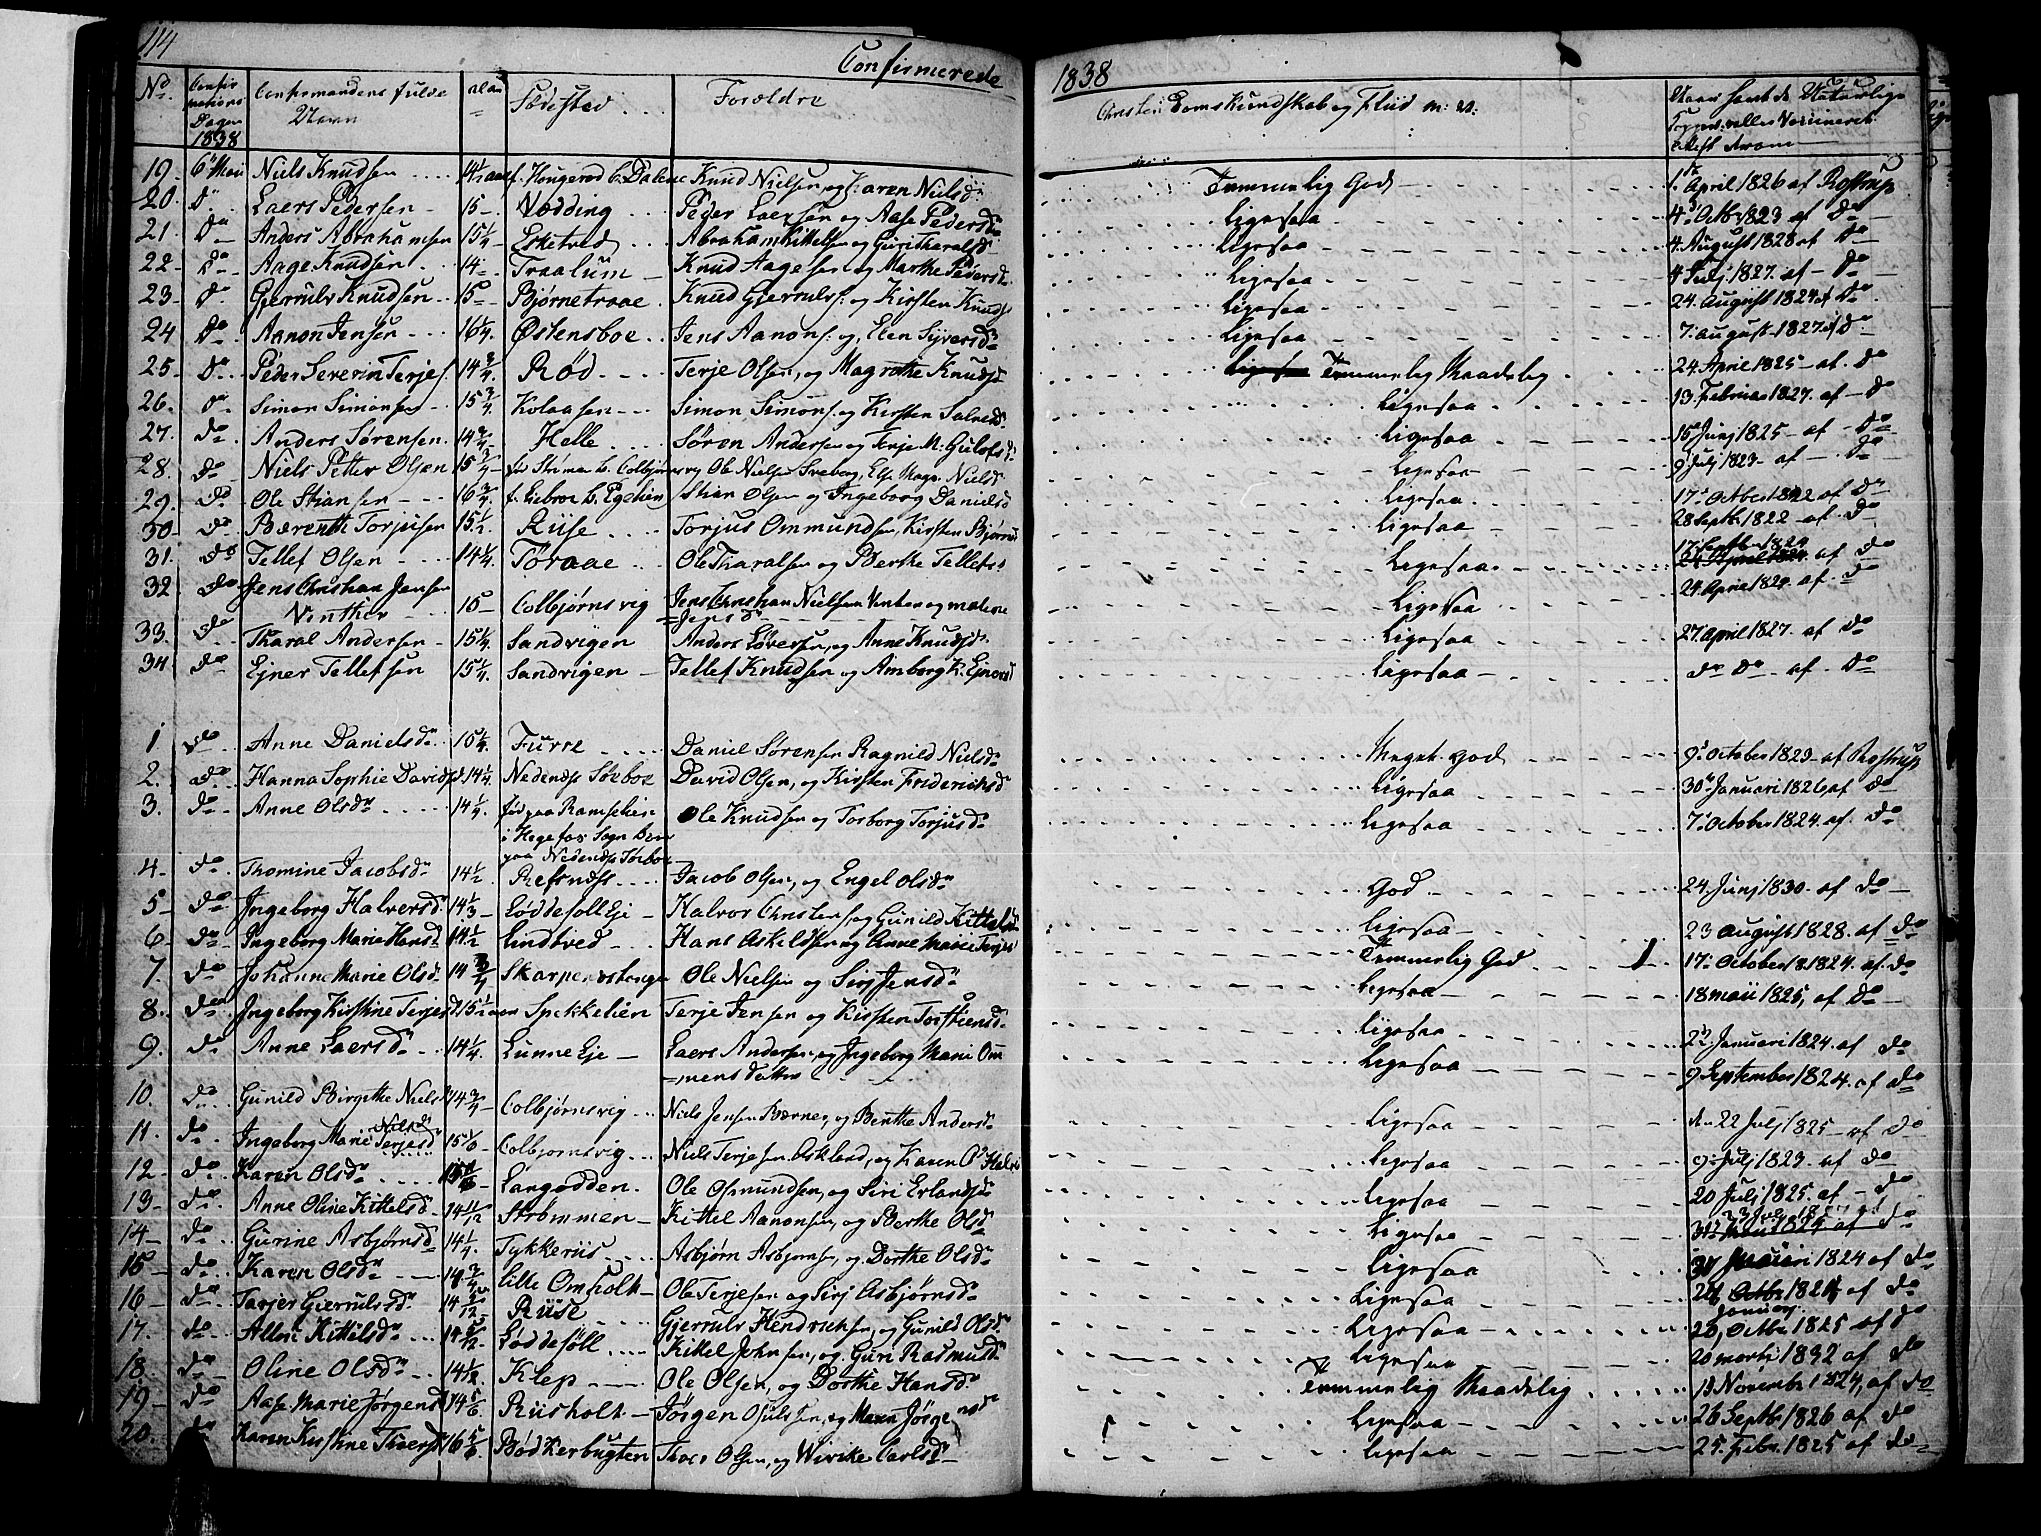 114
Confirmerede
1838
No. Confirmations Dagen 1838 Confirmandens fulde Navn alder Fødested Forældre Christendoms Kundskab og Flid m: v: Naar samt de Naturlige Kopper eller Vaccineret attest
19. 6 Mai Niels Knudsen 14 1/2 aar f. Hougerød b. Dalene Knud Nielsen og Karen Nielsd. Temmelig God 1. April 1826 af Rostrup
20. Do Laers Pedersen 15 Vædding Peder Laersen og Aase Pedersd. Ligesaa 4. Octbr 1823 af Do
21. Do Anders Abrahamsen 15 1/4 Esketved Abraham Kittelsen og Guri Tharalsd. Ligesaa 4. August 1828 af Do
22 Do Aage Knudsen 14 Traalum Knud Aagesen og Marthe Pedersd. Ligesaa 4 Julj 1827. af Do
23 Do Gjerrulv Knudsen 15 Bjørnetraae Knud Gjerrulvs. og Kirsten Knuds Ligesaa 24. August 1824 af Do
24 Do Aanon Jensen 16 1/4 Østensboe Jens Aanons. og Elen Syversd. Ligesaa 7. august 1827 af Do
25 Do Peder Severin Terjes. 14 3/4 Rød Terje Olsen, og Magrethe Knudsd. Ligesaa Temmelig Maadelig 24 April 1825 af Do
26. Do Simon Simonsen 15 3/4 Kolaasen Simon Simons. og Kirsten Salvesd. Ligesaa 13. Februar 1827. af Do
27. Do Anders Sørensen 14 3/4 Helle Søren Andersen og Terje M: Gulofsd. Ligesaa 15 Junj 1825 af Do
28. Do Niels Petter Olsen 15 3/4 Colbjørnsvig Ole Nielsen Sveborg, Else Nielsd Ligesaa 9 Julj 1823 af Do
29. Do Ole Stiansen 16 3/4 Stian Olsen og Ingeborg Danielsd Ligesaa 17 Octber 1822 af Do
30 Do Bærenth Torjusen 15 1/2 Riise Torjus Ommundsen, Kirsten Bjørns Ligesaa 28 Septb 1822 af Do
31. Do Tellef Olsen 14 1/4 Tøraae Ole Tharalsen og Berthe Tellefs. Ligesaa af Do
32 Do Jens Christian Jensen Vinther 15 Colbjørnsvig Jens Christian Nielsen Vinter og Malene Jensd. Ligesaa 24 April 1820. af Do
33. Do Tharal Andersen 15 1/4 Sandvigen Anders Sørensen, og Anne Knudsd. Ligesaa 27. april 1827. af Do
34 Do Ejner Tellefsen 15 1/4 Sandvigen Tellef Knudsen og Amborg K. Ejnersd Ligesaa Do Do af Do
1 Do Anne Danielsd. 15 1/4 Furre Daniel Sørensen Ragnild Nielsd. Meget god 9. October 1823 af Rostrup
2. Do Hanna Sophie Davidsd. 14 1/4 Nedendss Sørboe David Olsen, og Kirsten Friderichsd Ligesaa 30. Januari 1826 af Do
3. Do Anne Olsd. 14 1/4 fød paa Ramselien i Hegefos Sogn Boer paa Nedendss Sørboe Ole Knudsen og Torborg Torjusd. Ligesaa 7. October 1824. af. Do
4. Do Thomine Jacobsd. 14 1/2 Refsness Jacob Olsen, og Engel Olsd. God 24. Junj 1830 af do
5 Do Ingeborg Halversd. 14 1/3 Løddesøll Eje Halvor Christens. og Gunild Kittelsd. Ligesaa 23 august 1828. af Do
6 Do Ingeborg Marie Hansd. 14 1/2 Lindtved Hans Askildsen og Anne Marie Terjesd Temmelig God 17. October 1824. af Do
7. Do Johanne Marie Olsd. 14 3/4 Ole Nielsen og Siri Jensd. Ligesaa 18 maii 1825, af Do
8. Do Ingeborg Kirstine Terjesd 15 1/2 aar Spekkelien Terje Jensen og Kirsten Torstiensd. Ligesaa 22 Januari 1824. af do
9. Do Anne Laersd. 14 1/4 Lunne Eje Laers Andersen, og Ingeborg Marie Ommensdatter Ligesaa 9 September 1824. af do
10. Do Gunild Birgithe Niels 14 3/4 Colbjørnsvig Niels Jensen Bærnes, og Benthe Andersd. Ligesaa den 22 Julj 1825 af Do
11. Do Ingeborg Marie Terjesd. Nielsd. 15 Colbjornsvig Niels Terjesen Askland, og Karen O. Halvs Ligesaa 9. Julj 1823. af Do
12 Do Karen Olsd. Langodden. Ole Osmundsen, og Siri Erlandsd. Ligesaa 20 Julj 1825. af Do
13. Do Anne Oline Kittelsd. 14 11/12 Strømmen Kittel Aanonsen, og Berthe Olsd Ligesaa 1824 af Do
14 Do Gurine Asbjørnsd. 14 1/4. Tykkeriis Asbjørn Asbjørnsen, og Dorthe Olsd. Ligesaa 1824 af Do
15 Do Karen Olsd. 14 3/4 Lille Omholt Ole Terjesen og Sirj Asbjørnsd. Ligesaa 24 Octbr 1824 af Do
16 Do Tarjer Gjerrulsd. 14 Riise Gjerrulv Hendrichsen, og Gunild Olsd. Ligesaa Januarj 26, Octbr 1825 af do
17. Do Kittilsd. 14 Løddesøll Kittel Johnsen, og Guri Rasmusd. Ligesaa 20 1832 af Do
18. Do Oline Olsd. 14 1/2 Klep Ole Olsen, og Dorthe Hansd. Temmelig Maadelig 18 Novembr 1824, af Do
19 Do Aase Marie Jørgensd 14 5/6 Riisholt Jørgen Osulfsen, og Maren Jørgensd. Ligesaa 26 Septbr 1826 af do
20. Do Karen Kirstine Thoersd. 16 5/6 Bødkerbugten Thoer Olsen, og Wivike Carlsd. Ligesaa 25. Febr. 1825 af Do